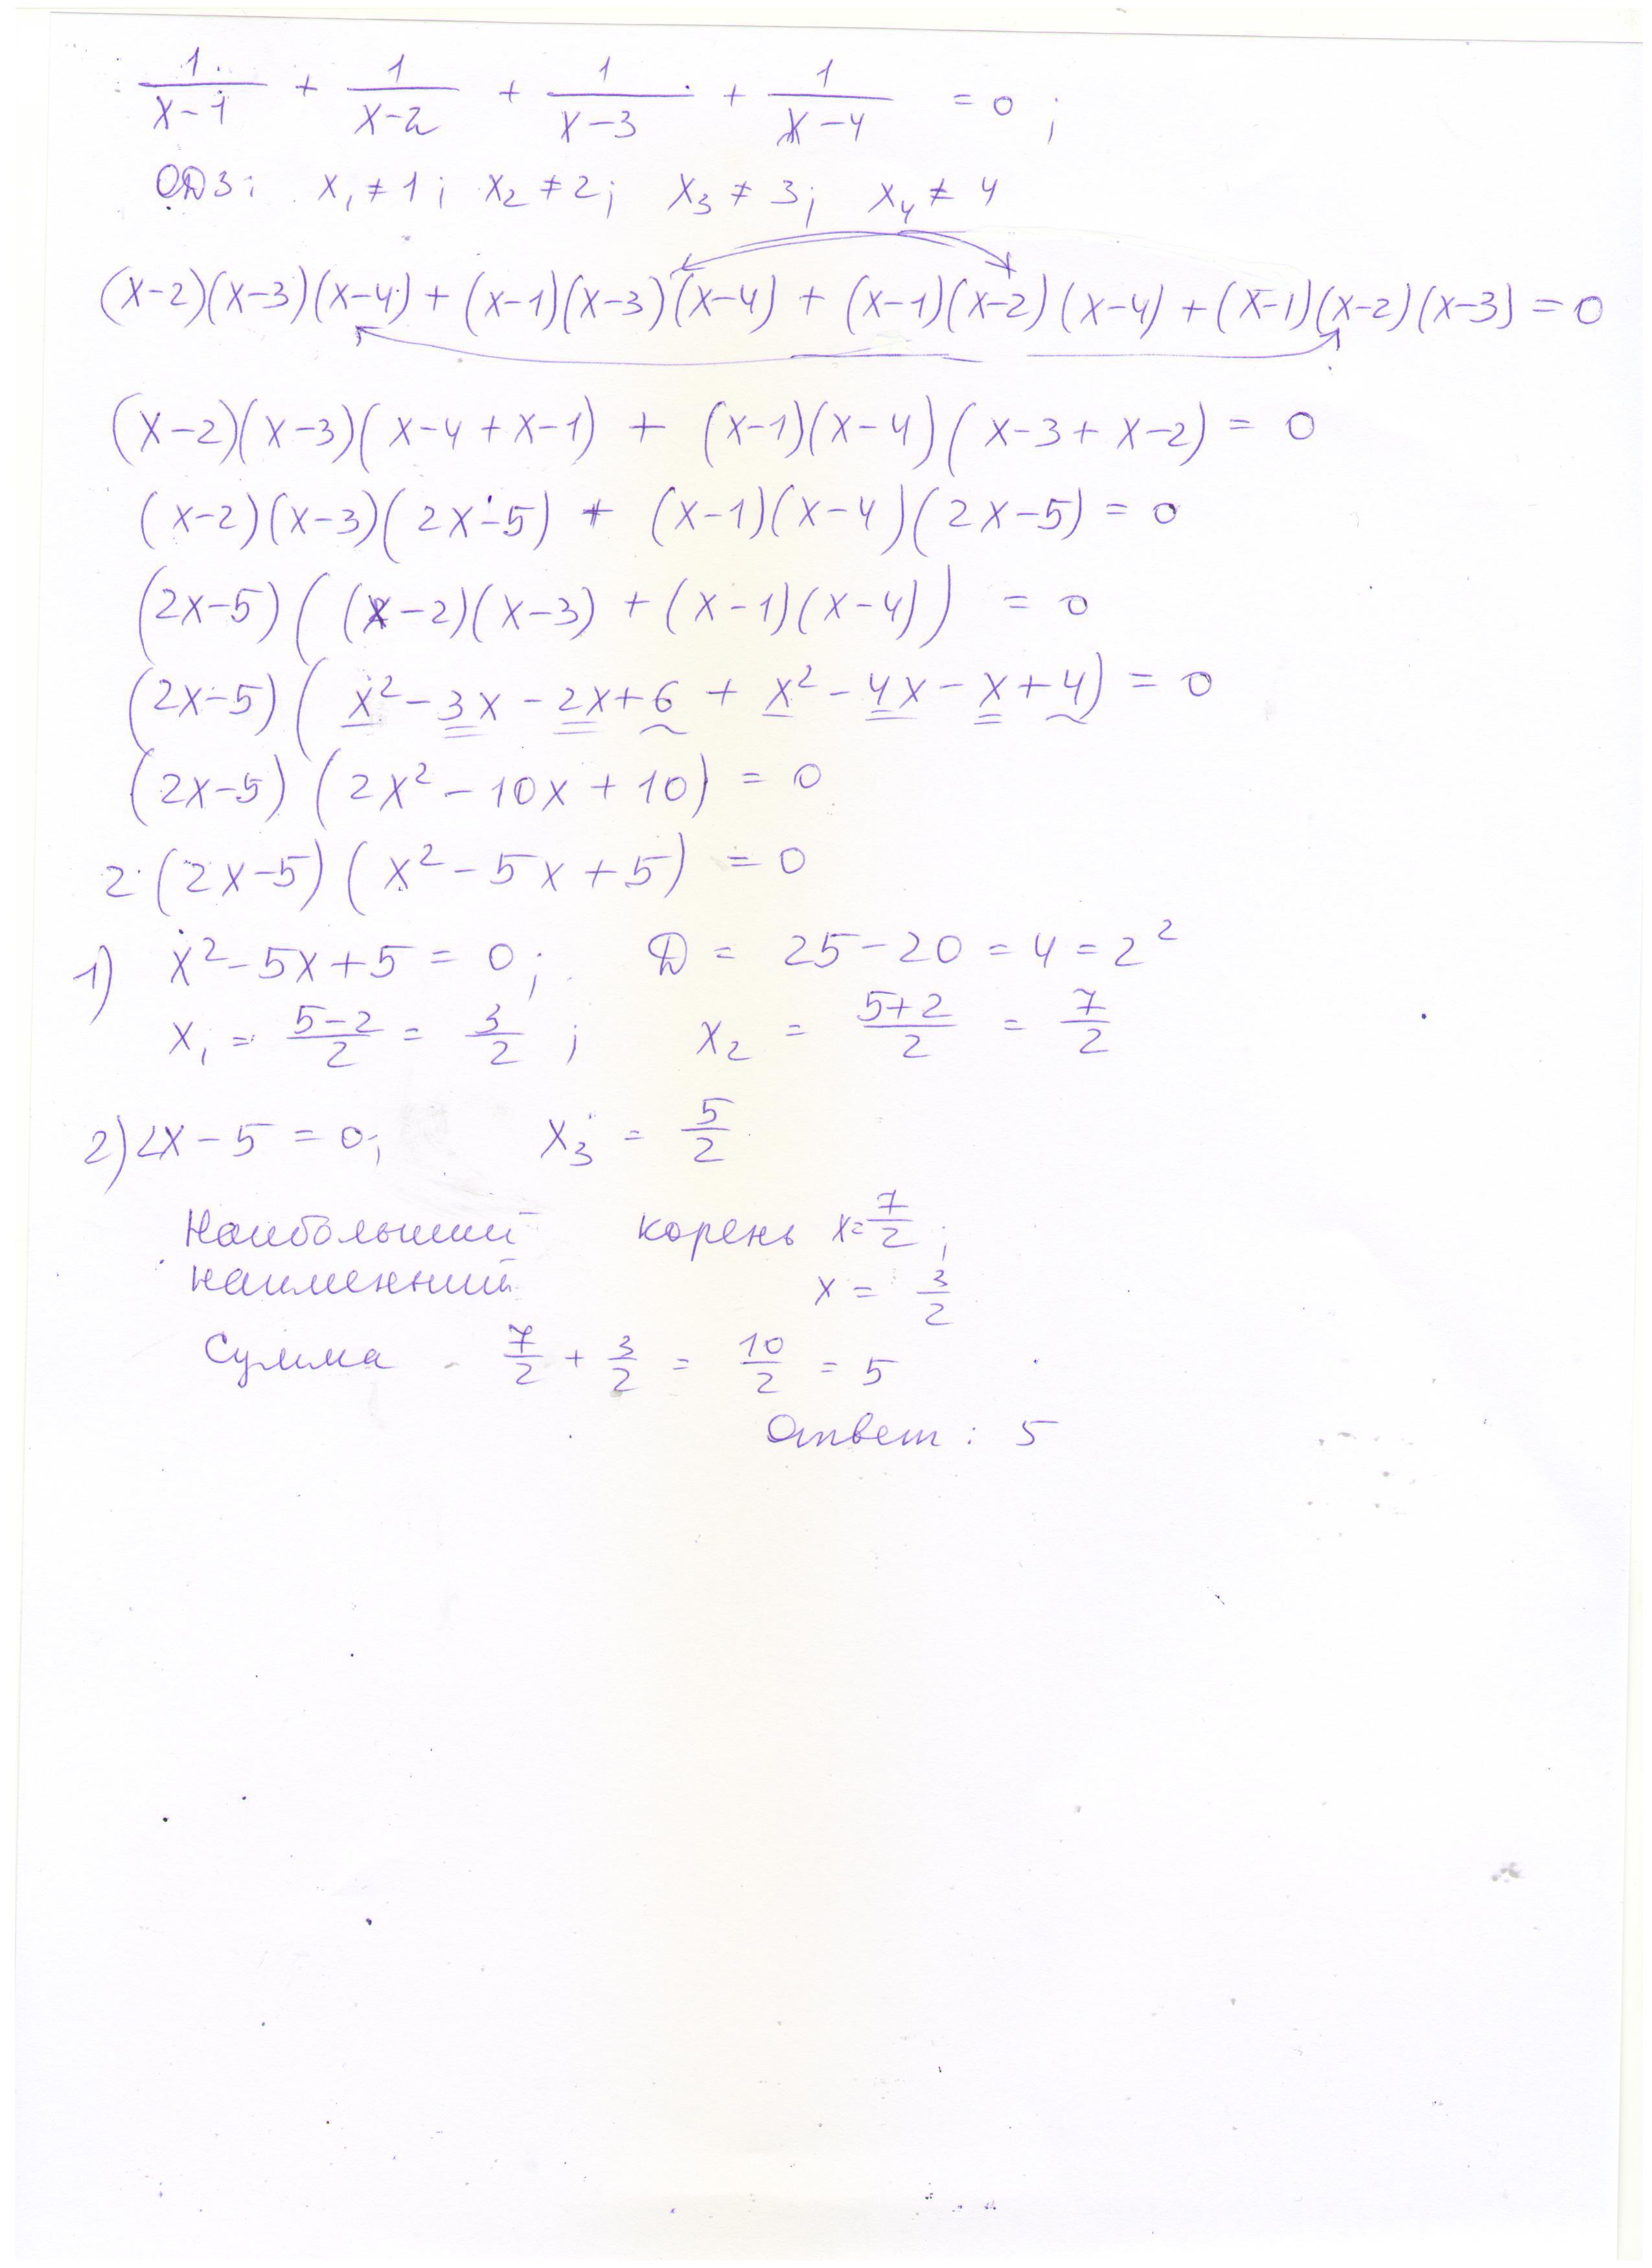 1/(x-1) + 1/(x-2) + 1/(x-3) + 1/(x-4) = 0 ;
ОДЗ: x₁ ≠ 1; x₂ ≠ 2; x₃ ≠ 3; x₄ ≠ 4
(x-2)(x-3)(x-4) + (x-1)(x-3)(x-4) + (x-1)(x-2)(x-4) + (x-1)(x-2)(x-3) = 0
(x-2)(x-3)(x-4+x-1) + (x-1)(x-4)(x-3+x-2) = 0
(x-2)(x-3)(2x-5) + (x-1)(x-4)(2x-5) = 0
(2x-5)((x-2)(x-3) + (x-1)(x-4)) = 0
(2x-5)(x²-3x-2x+6 + x²-4x-x+4) = 0
(2x-5)(2x²-10x+10) = 0
2·(2x-5)(x²-5x+5) = 0
1) x²-5x+5 = 0; D = 25-20 = 4 = 2²
x₁ = (5-2)/2 = 3/2 ; x₂ = (5+2)/2 = 7/2
2) 2x-5 = 0; x₃ = 5/2
Наибольший корень x = 7/2 ;
наименний x = 3/2
Сумма - 7/2 + 3/2 = 10/2 = 5
Ответ: 5